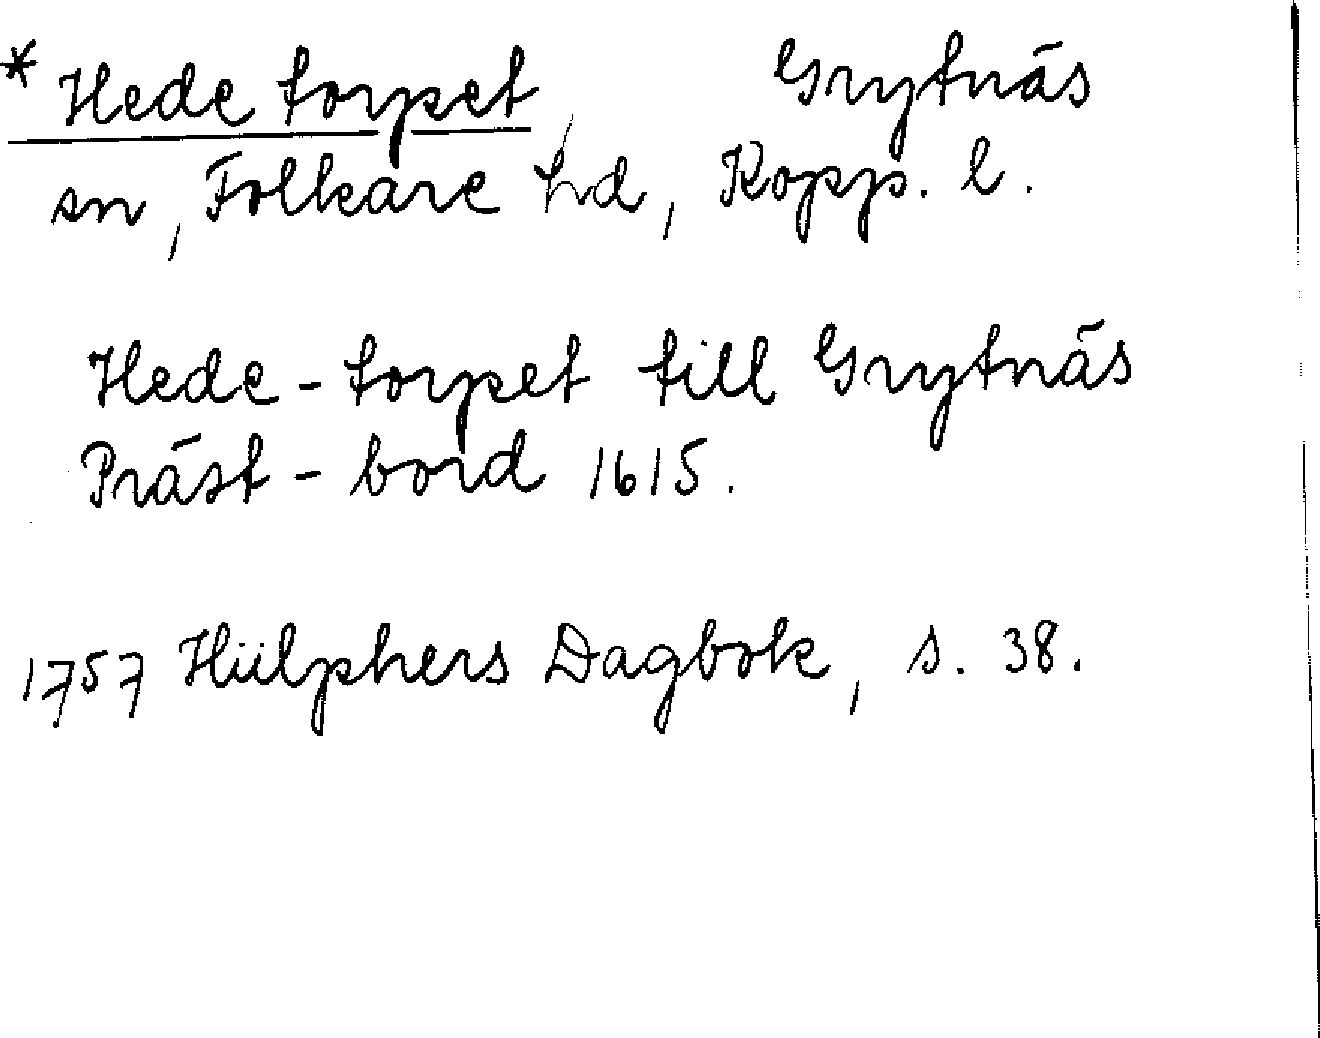 * Hede torpet, Grytnäs
sn, Folkare hd, Kopp. l.
Hede-torpet till Grytnäs
Präst-bord 1615.
1757 Hülphers Dagbok, s. 38.